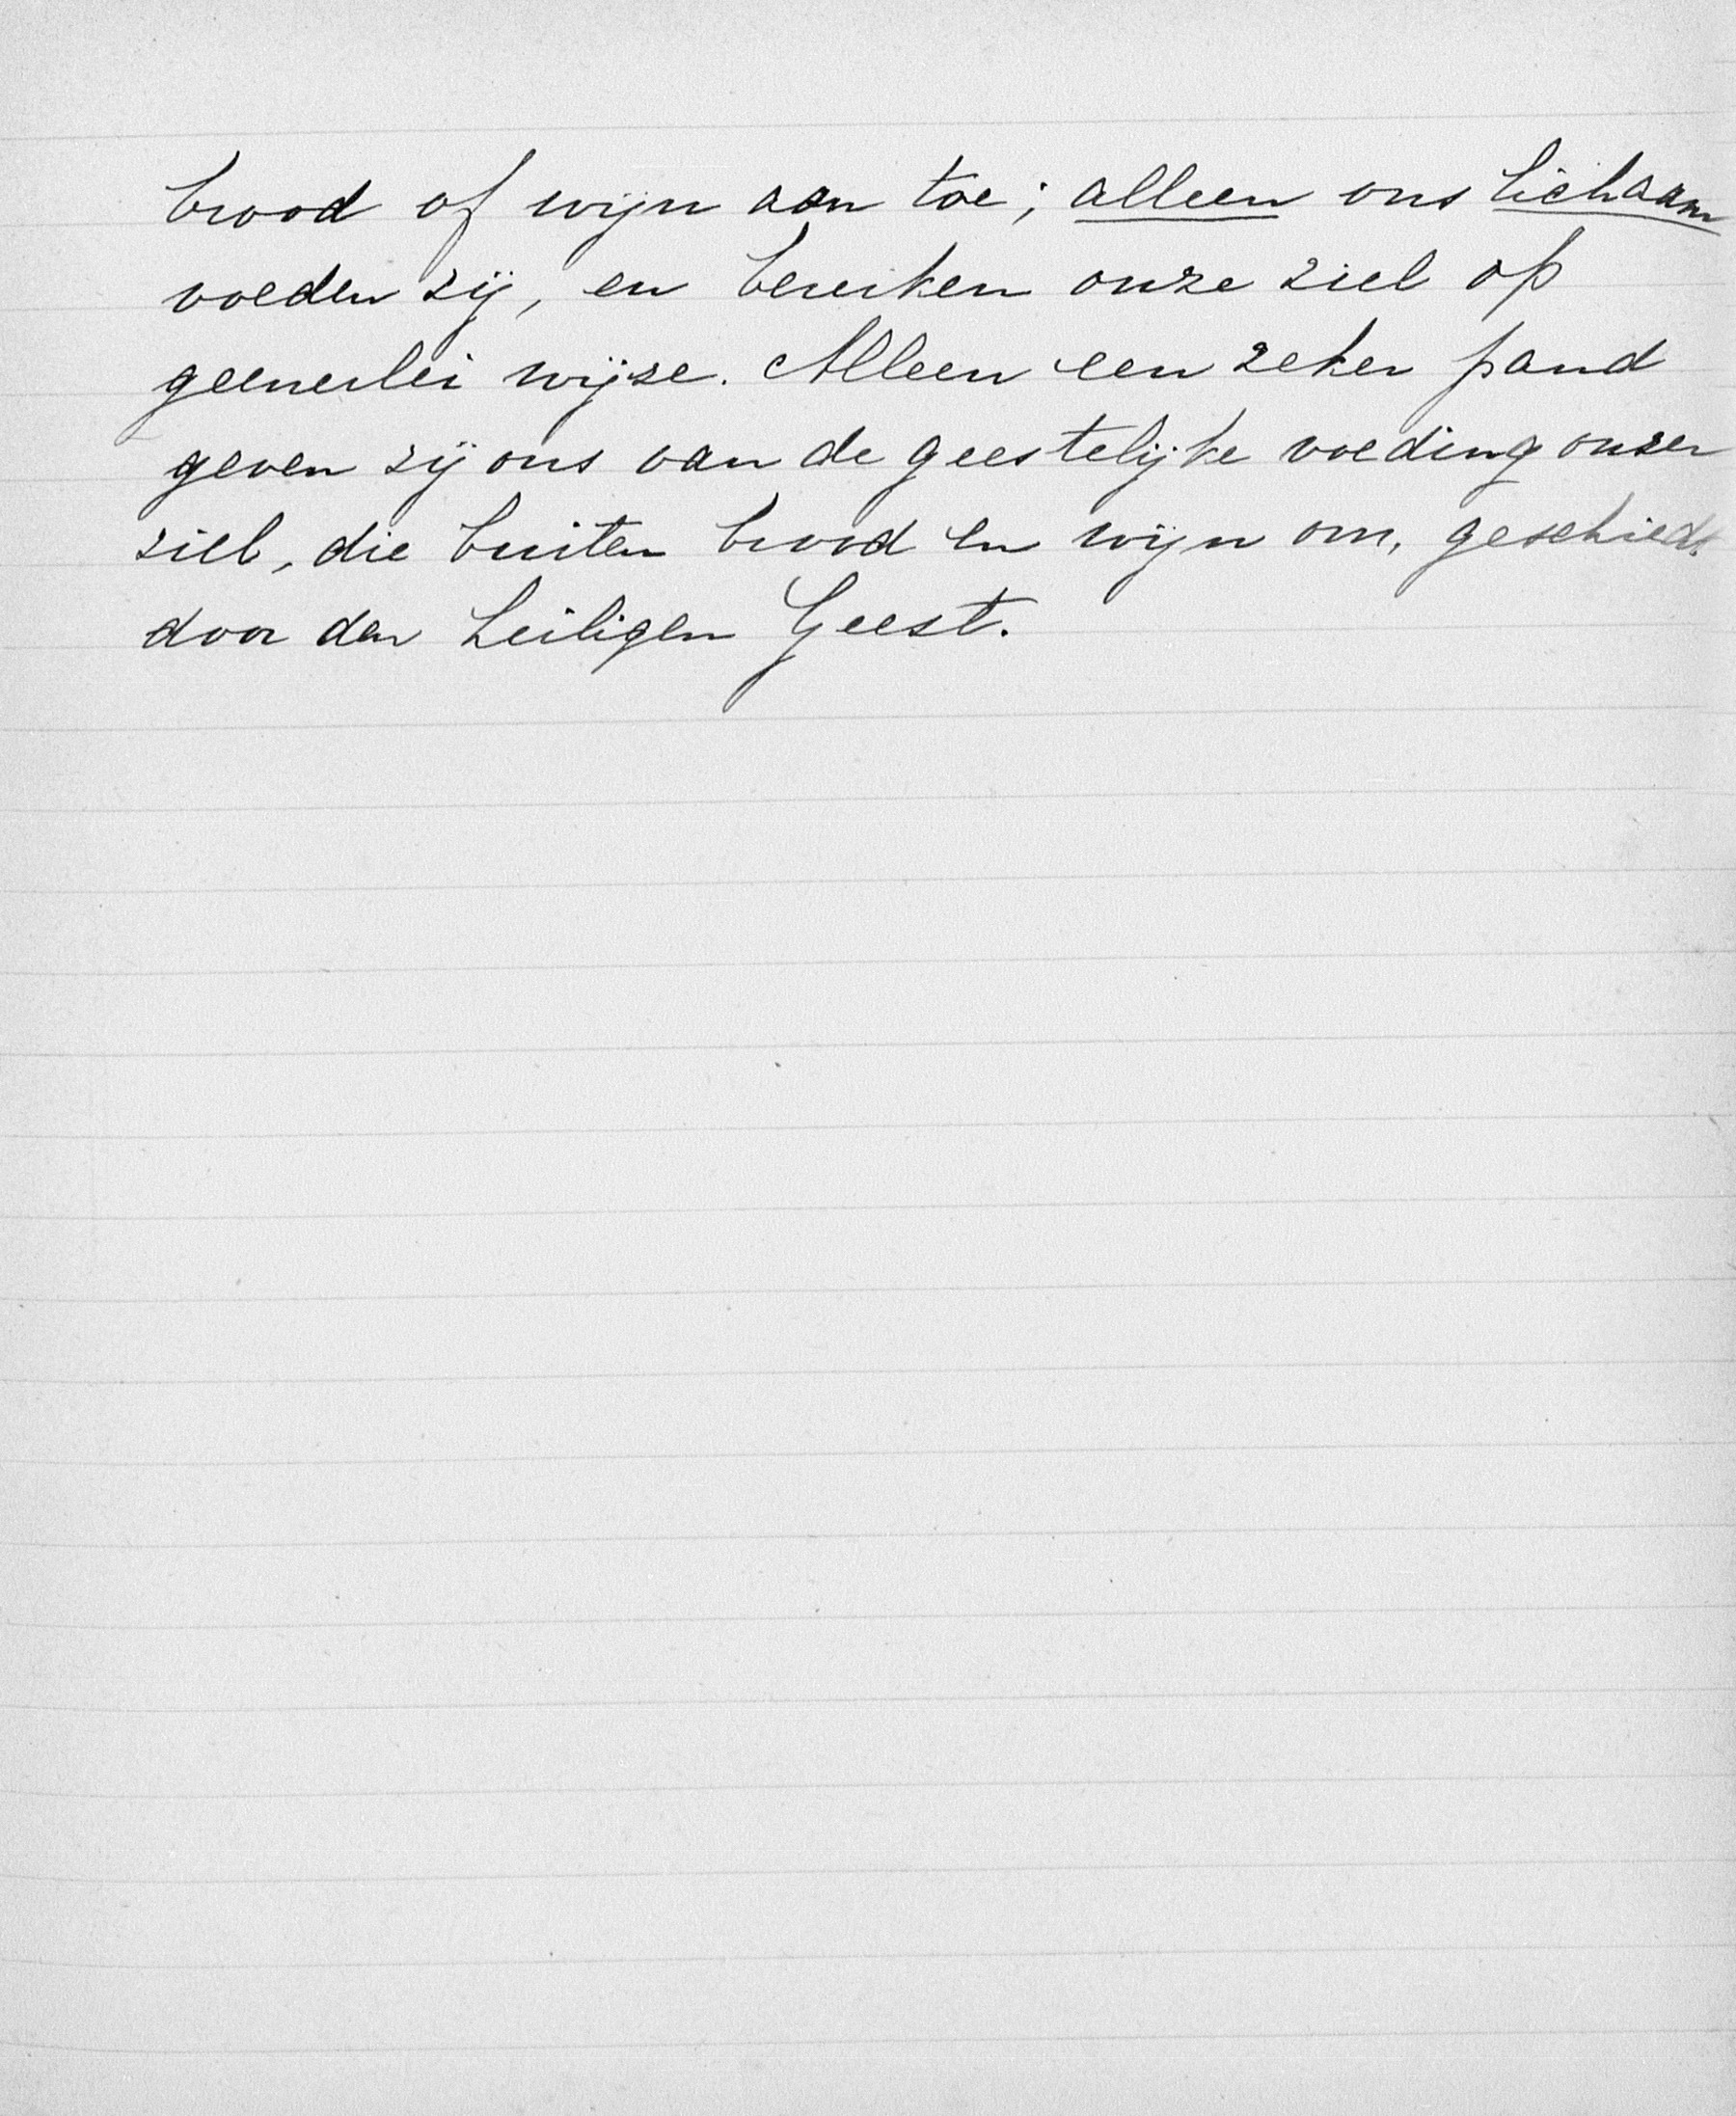 brood of wijn aan toe; alleen ons lichaam
voeden zij, en bereiken onze ziel op
geenerlei wijze. Alleen een zeker pand
geven zij ons van de geestelijke voeding onzer
ziel, die buiten brood en wijn om, geschiedt
door den heiligen Geest.